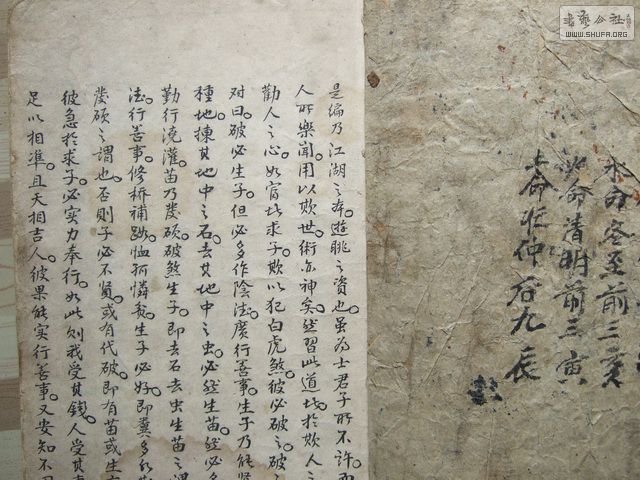 書藝公社
WWW.SHUFA.ORG
水命冬至前三亥
火命清明前三寅
土命
仲
九辰
是編乃江湖之本遊眺之資也雖為士君子所不許而
人所樂聞用以欺世術亦神矣然習此道
於欺人之
勸人之心如富
求子欺以犯白虎煞彼必破之破之
對曰破必生子但必多作陰
廣行善事生子乃能賢
種地揀其地中之石去其地中之虫必然生苗然必多
勤行澆灌苗乃發碩破煞生子即去石去虫生苗之謂
行善事修桥補路恤孤憐貧生子必好即糞多
發碩之謂也否則子必不賢或有代破即有苗或生
彼急於求子必实力奉行如此則我受其錢人受其
足以相準且天相吉人彼果能实行善事又安知不